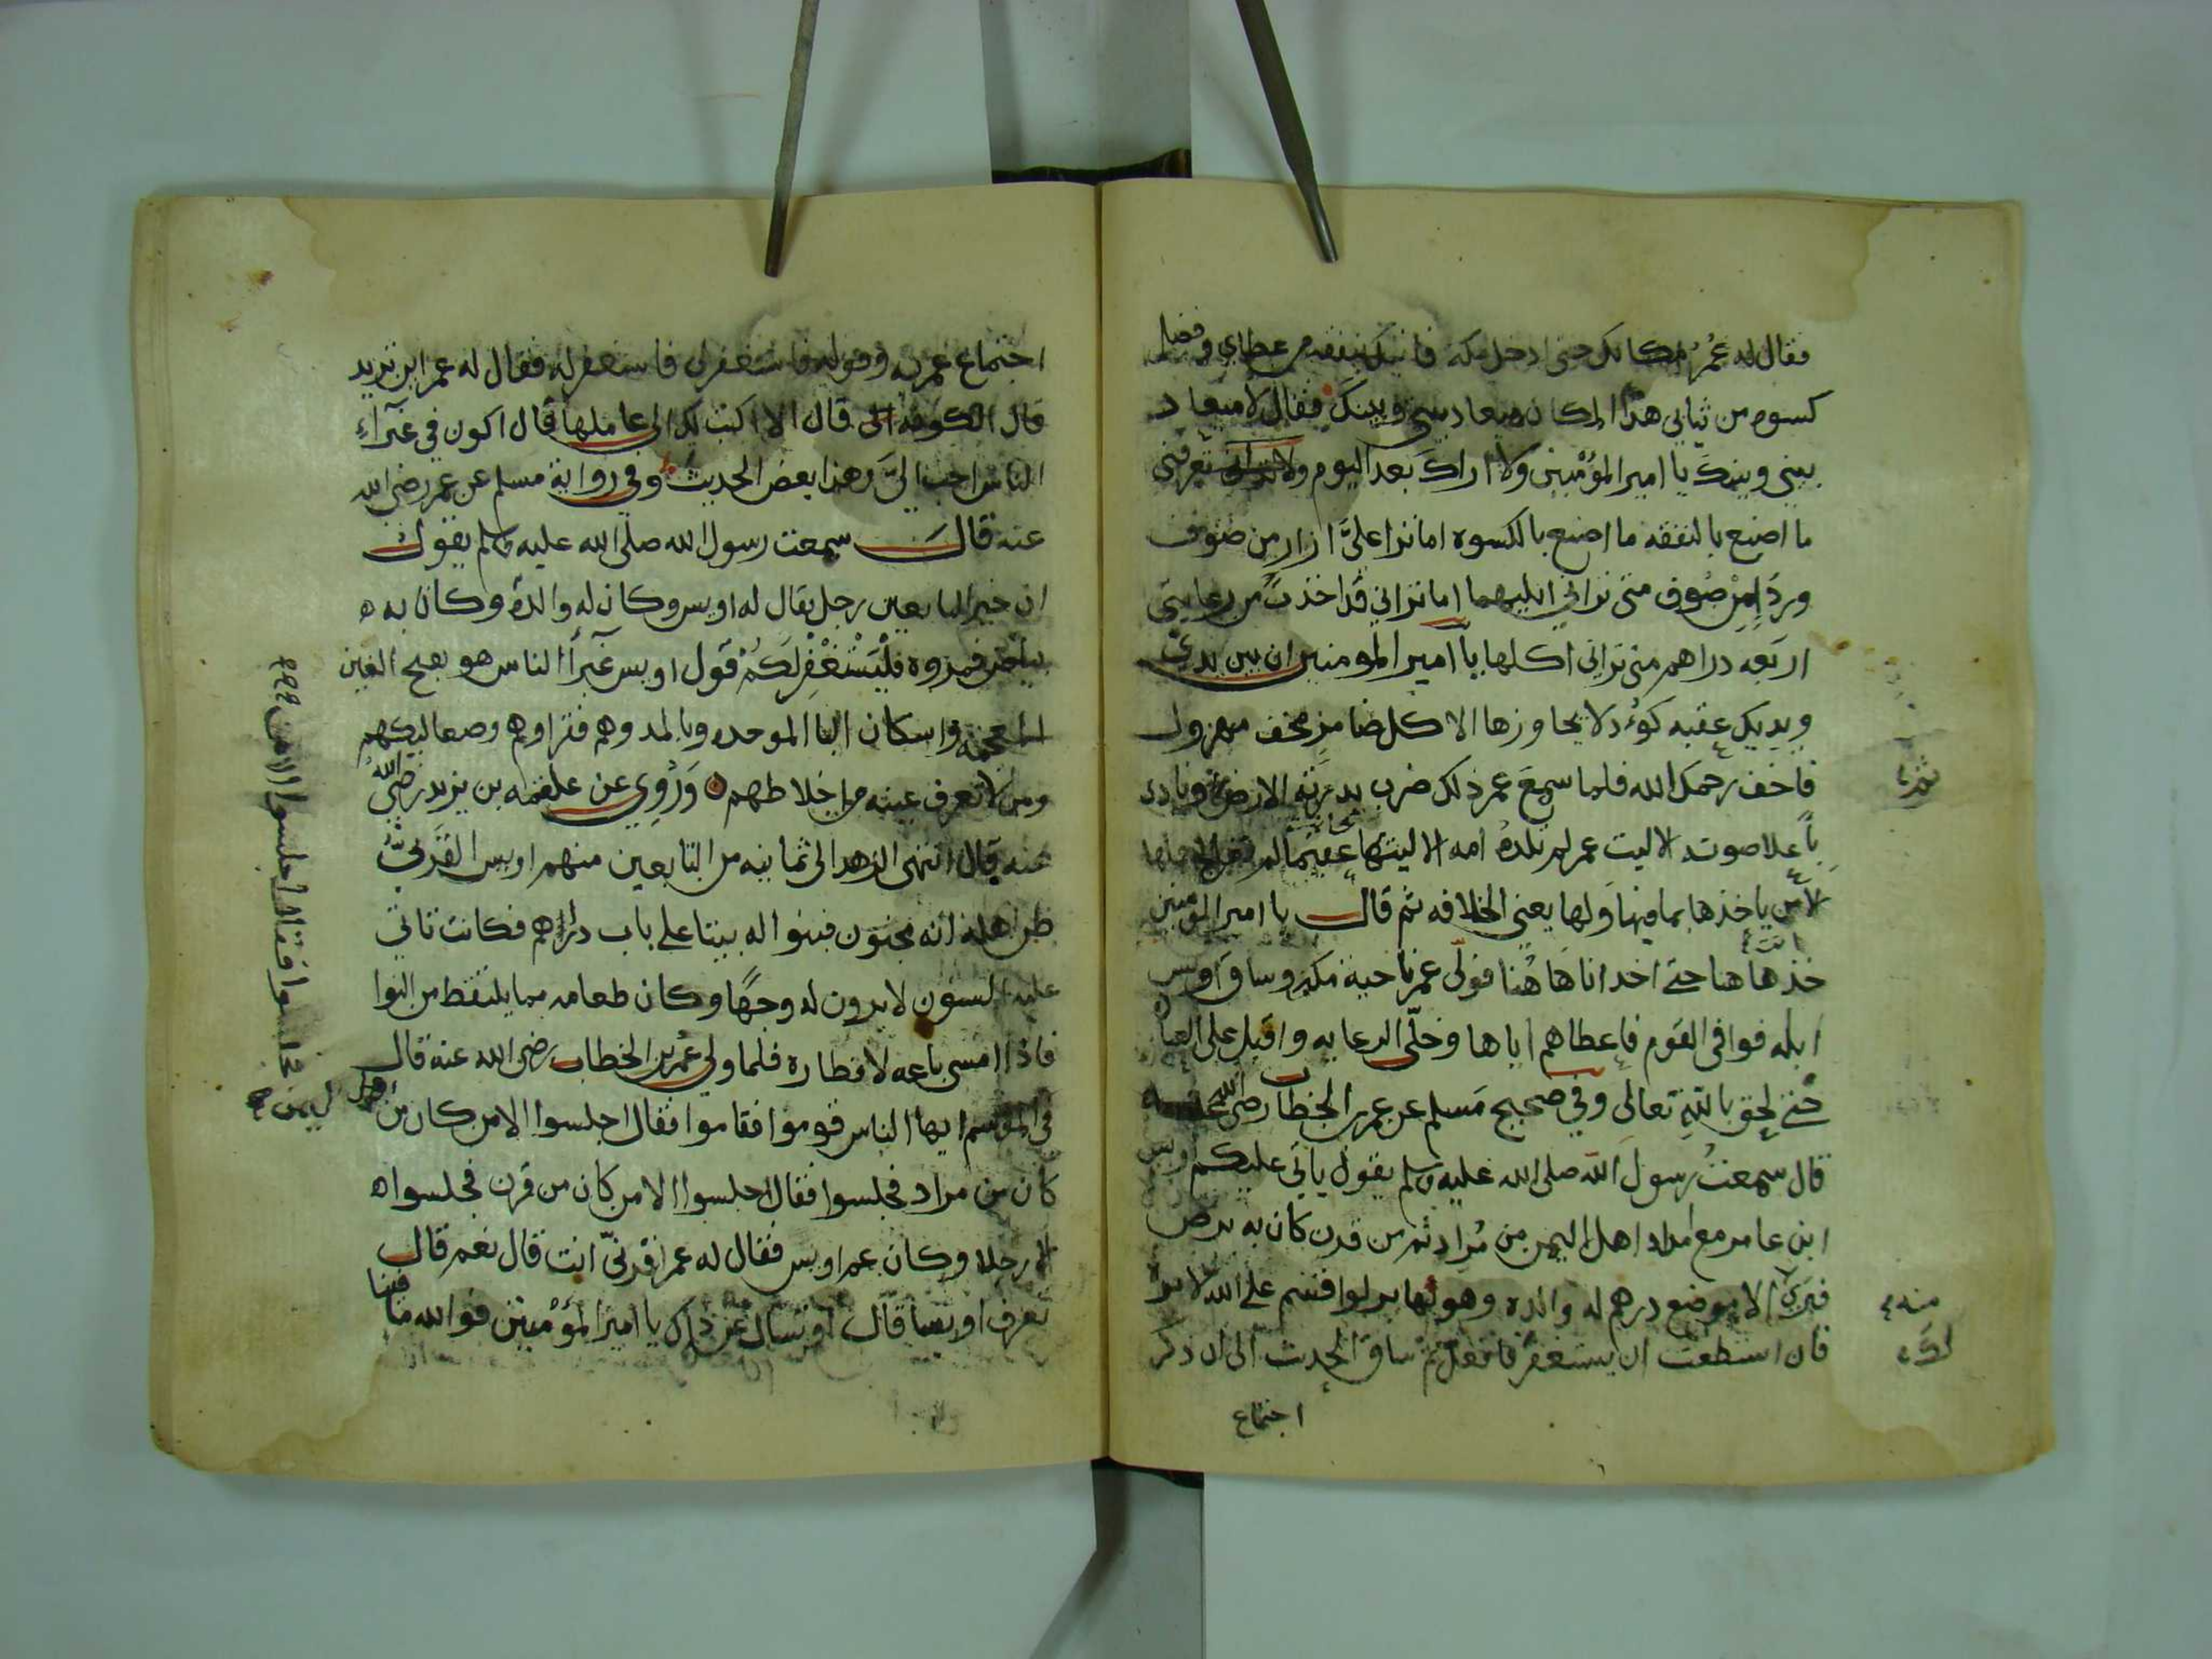 فقال له عمر مكانك حتى ادخل مكة فاتيك بنفقة من عطاي وفضل
كسوه من ثيابي هذا المكان ميعاد بيني وبينك فقال لا ميعاد
بيني وبينك يا امير المؤمنين ولا اراك بعد اليوم ولا تعرفني
ما اصنع بالنفقه ما اصنع بالكسوه اما ترا عليَّ ازار من صوف
وردا من صوف متى تراني ابليهما اما تراني قد اخذت من رعايتي
اربعه دراهم متى تراني اكلها يا امير المومنين ان بين يديّ
ويديك عقبه كوءد لا يجاوزها الا كل ضامر مخف مهزول
فاخف رحمك الله فلما سمع عمر ذلك ضرب بدرته الارض ونادى
با علا صوته الا ليت عمر لم تلده امه الا ليتها عقيما لم تعالج
الا من ياخذها بما فيها ولها يعني الخلافه ثم قال يا امير المومنين
خذ انت هاهنا حتى اخد انا هاهنا فولى عمر ناحية مكه وساق اويس
ابله فوافى القوم فاعطاهم اياها وخلّى الرعايه واقبل على العباده
حتى لحق بالله تعالى وفي صحيح مسلم عن عمر بن الخطاب رضي الله عنه
قال سمعت رسول الله صلى الله عليه وسلم يقول ياتي عليكم اويس
ابن عامر مع امداد اهل اليمن من مُراد ثم من قرن كان به برص
فبرئ الا موضع درهم له والده وهو بها بر لو اقسم على الله لابره
فان استطعت ان يستغفر فافعل ثم ساق الحديث الى ان ذكر
اجتماع
منه
لك
اجتماع عمر به وقوله فاستغفر لي فاستغفر له فقال له عمر اين تريد
قال الكوفه قال الا اكتب لك الى عاملها قال اكون في غبرآء
الناس احب اليَّ وهذا بعض الحديث وفي رواية مسلم عن عمر رضي الله
عنه قال سمعت رسول الله صلى الله عليه وسلم يقول
ان خير التابعين رجل يقال له اويس وكان له والدة وكان به
بياض فمروه فليستغفر لكم قول اويس غبرآ الناس هو بفتح الغين
المعجمة واسكان البا الموحده وبالمد وهم فقراوهم وصعاليكهم
ومن لا تعرف عينه من اخلاطهم وَرُوِي عن علقمه بن يزيد رضي الله
عنه قال انتهى الزهد الى ثمانيه من التابعين منهم اويس القرنيُّ
ظن اهله انه مجنون فبنوا له بيتا على باب دارهم فكانت تاتي
عليه السنون لا يرون له وجهًا وكان طعامه مما يلتقط من النوا
فاذا امسى باعه لافطاره فلما ولي عمر بن الخطاب رضي الله عنه قال
في الموسم ايها الناس قوموا فقاموا فقال اجلسوا الا من كان من
كان من مراد فجلسوا فقال اجلسوا الا من كان من قرن فجلسوا
الا رجلا وكان عم اويس فقال له عمر اقرنيّ انت قال نعم قال
تعرف اويسا قال او تسال عن ذلك يا امير المؤمنين فو الله ما فينا
اهل اليمن
فجلسوا فقال اجلسوا الا من